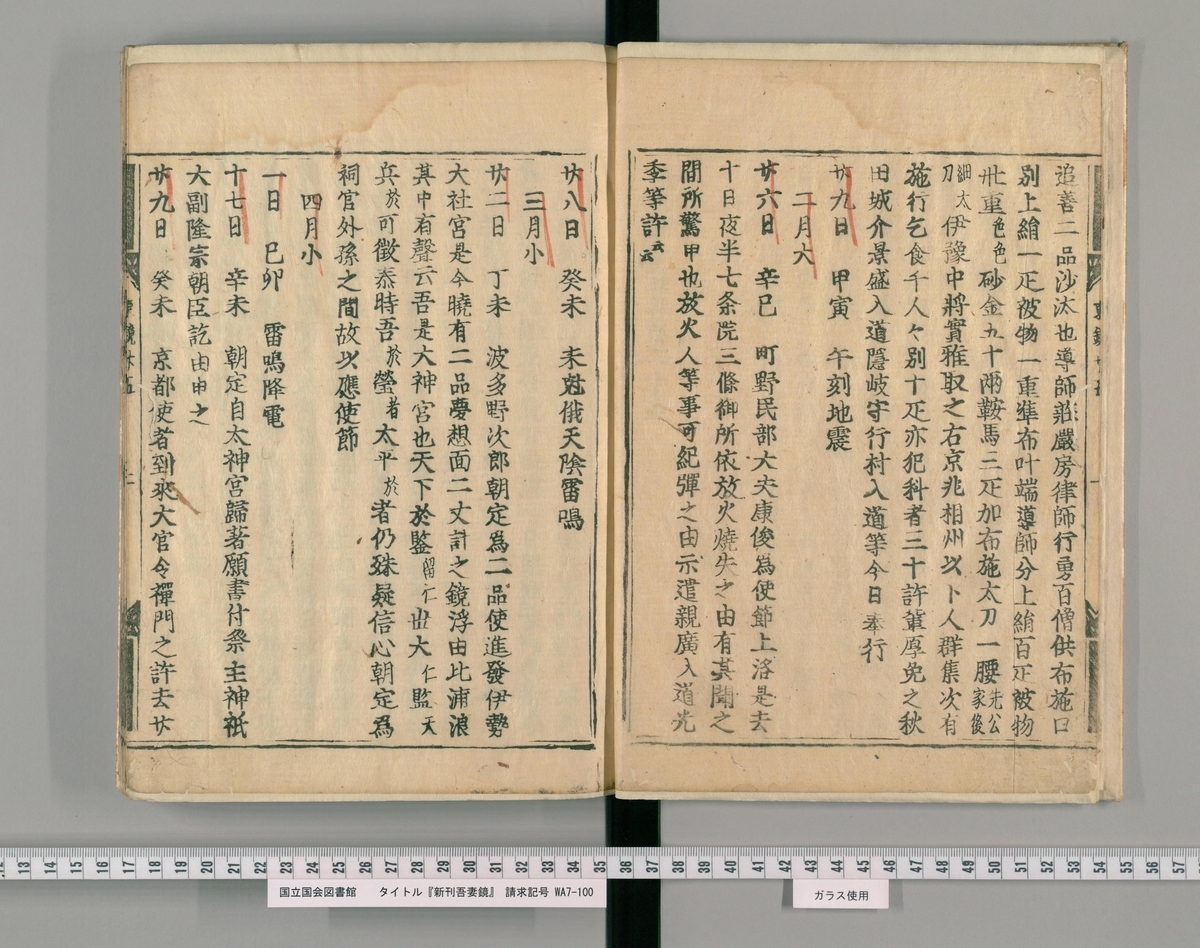 追善二品沙汰也導師莊嚴房律師行勇百僧供布施口
別上絹一疋被物一重準布叶端導師分上絹百疋被物
卅重色色砂金五十兩鞍馬三疋加布施太刀一腰先公家後
細太刀伊豫中將實雅取之右京兆相州以卜人群集次有
施行乞食千人々別十疋亦犯科者三十許輩厚免之秋
田城介景盛入道隱岐守行村入道等今日奉行
廿九日 甲寅 午刻地震
二月六
廿六日 辛巳 町野民部大夫康俊為使節上洛是去
十日夜半七条院三條御所依放火燒失之由有其聞之
間所驚甲也放火人等事可紀彈之由示遣親廣入道光
季等許云云
廿八日 癸未 未尅俄天陰雷鳴
三月小
廿二日 丁未 波多野次郎朝定為二品使進發伊勢
大社宮是今曉有二品夢想面二丈計之鏡浮由比浦浪
其中有聲云吾是大神宮也天下於鑒留仁丗大仁監天
兵於可徵泰時吾於瑩者太平於者仍殊疑信心朝定為
祠官外孫之間故以應使節
四月小
一日 己卯 雷鳴降電
十七日 辛未 朝定自太神宮歸著願書付祭主神祇
大副隆宗朝臣訖由申之
廿九日 癸未 京都使者到來大官令禪門之許去廿
12 13 14 15 16 17 18 19 20 21 22 23 24 25 26 27 28 29 30 31 32 33 34 35 36 37 38 39 40 41 42 43 44 45 46 47 48 49 50 51 52 53 54 55 56 57
国立国会図書館 タイトル『新刊吾妻鏡』 請求記号 WA7-100
ガラス使用